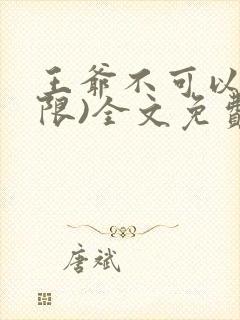 王爷不可以
限)全文免費
唐斌